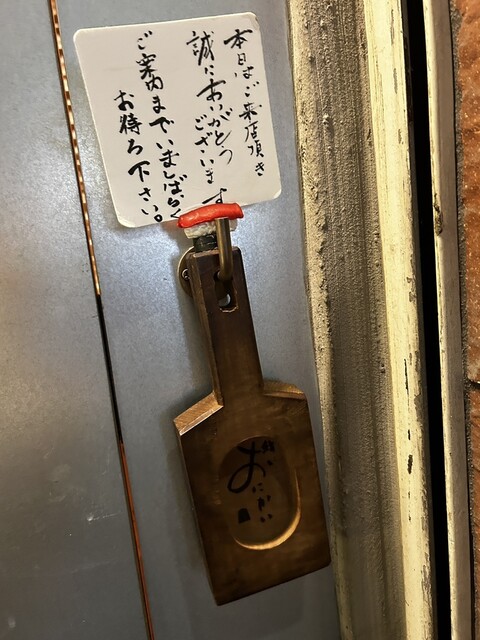 本日はご来店頂き
誠にありがとう
ございます
ご案内まで
いましばらく
お待ち下さい。
鮨
おにかい